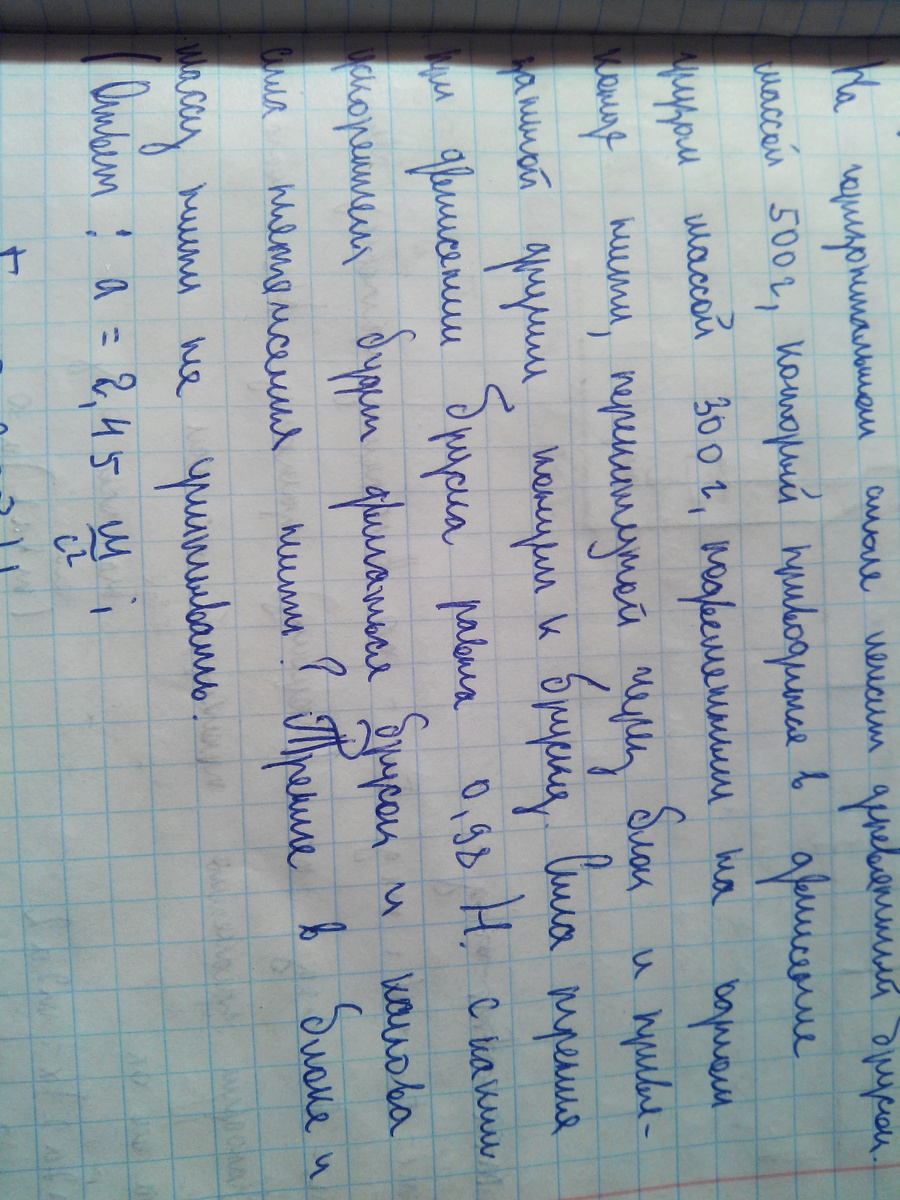 На горизонтальном столе лежит деревянный брусок
массой 500 г, который приводится в движение
грузом массой 300 г, подвешенным на одном
конце нити, перекинутой через блок и привя-
занной другим концом к бруску. Сила трения
при движении бруска равна 0,98 Н. С каким
ускорением будет двигаться брусок и какова
сила натяжения нити? Трение в блоке и
массу нити не учитывать.
(Ответ: a = 2,45 м/с² ;